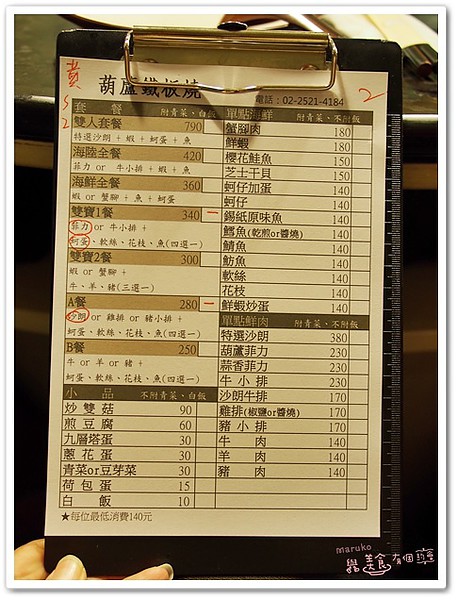 黄
5
2
葫蘆鐵板燒
電話：02-2521-4184
2
套 餐 附青菜、白飯
雙人套餐 790
特選沙朗 + 蝦 + 蚵蛋 + 魚
海陸全餐 420
菲力 or 牛小排 + 蝦 + 魚
海鮮全餐 360
蝦 or 蟹腳 + 魚 + 蚵蛋
雙寶1餐 340 一
菲力 or 牛小排 +
蚵蛋、軟絲、花枝、魚(四選一)
雙寶2餐 300
蝦 or 蟹腳 +
牛、羊、豬(三選一)
A餐 280 一
沙朗 or 雞排 or 豬小排 +
蚵蛋、軟絲、花枝、魚(四選一)
B餐 250
牛 or 羊 or 豬 +
蚵蛋、軟絲、花枝、魚(四選一)
小 品 不附青菜、白飯
炒雙菇 90
煎豆腐 60
九層塔蛋 30
蔥花蛋 30
青菜or豆芽菜 30
荷包蛋 15
白飯 10
★每位最低消費140元
單點海鮮 附青菜、不附飯
蟹腳肉 180
鮮蝦 180
櫻花鮭魚 150
芝士干貝 150
蚵仔加蛋 140
蚵仔 140
錫紙原味魚 140
鱈魚(乾煎or醬燒) 140
鯖魚 140
魴魚 140
軟絲 140
花枝 140
鮮蝦炒蛋 140
單點鮮肉 附青菜、不附飯
特選沙朗 380
葫蘆菲力 230
蒜香菲力 230
牛小排 230
沙朗牛排 170
雞排(椒鹽or醬燒) 170
豬小排 170
牛肉 140
羊肉 140
豬肉 140
maruko
美食有個